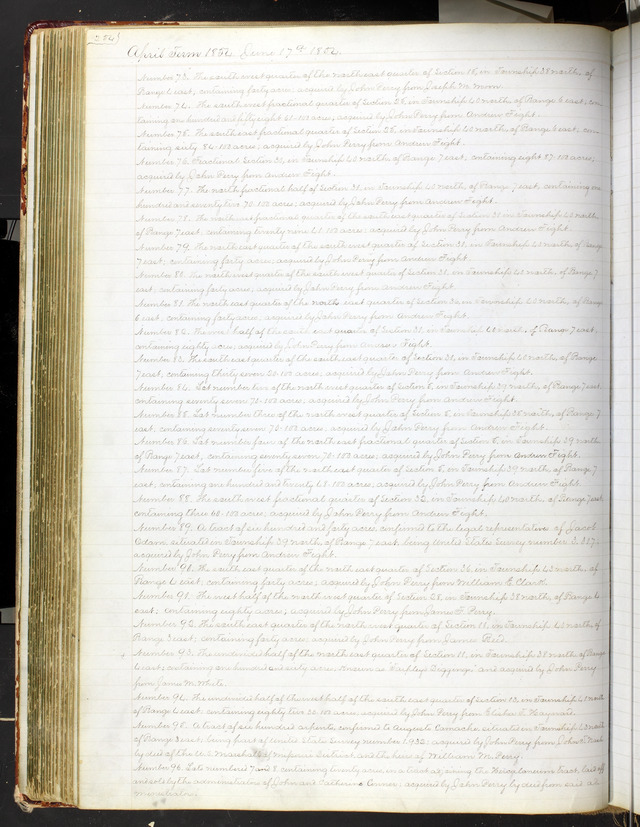 254
April Term 1852 June 17th 1852
Number 73. The south west quarter of the north east quarter of Section 18, in Township 38 north, of
Range 6 east, containing forty acres; acquired by John Perry from Joseph M.
Number 74. The south west fractional quarter of Section 28, in Township 40 north, of Range 6 east, con-
taining one hundred and fifty eight 60.100 acres; acquired by John Perry from Andrew Fight.
Number 75. The south east fractional quarter of Section 28, in Township 40 north, of Range 6 east, con-
taining sixty 86.100 acres; acquired by John Perry from Andrew Fight.
Number 76. Fractional Section 30, in Township 40 north, of Range 7 east, containing eight 87.100 acres;
acquired by John Perry from Andrew Fight.
Number 77. The north fractional half of Section 31, in Township 40 north, of Range 7 east, containing one
hundred and seventy two 70.100 acres; acquired by John Perry from Andrew Fight.
Number 78. The north west fractional quarter of the south east quarter of Section 31 in Township 40 north
of Range 7 east, containing twenty nine 61.100 acres; acquired by John Perry from Andrew Fight.
Number 79. The north east quarter of the south west quarter of Section 31, in Township 40 north, of Range
7 east, containing forty acres; acquired by John Perry from Andrew Fight.
Number 80. The north west quarter of the south west quarter of Section 31, in Township 40 north, of Range 7
east, containing forty acres; acquired by John Perry from Andrew Fight.
Number 81. The north east quarter of the north east quarter of Section 36 in Township 40 north, of Range
6 east, containing forty acres; acquired by John Perry from Andrew Fight.
Number 82. The half of the south west quarter of Section 31, in Township 40 north, of Range 7 east,
containing eighty acres; acquired by John Perry from Andrew Fight.
Number 83. The south west quarter of the south east quarter of Section 31, in Township 40 north, of Range
7 east, containing thirty seven 50.100 acres; acquired by John Perry from Andrew Fight.
Number 84. Lot number two of the north west quarter of Section 5, in Township 39 north, of Range 7 east
containing seventy seven 70.100 acres; acquired by John Perry from Andrew Fight.
Number 85. Lot number three of the north west quarter of Section 5, in Township 39 north, of Range 7
east, containing seventy seven 70.100 acres; acquired by John Perry from Andrew Fight.
Number 86. Lot number four of the north east fractional quarter of Section 5, in Township 39 north
of Range 7 east, containing seventy seven 70.100 acres; acquired by John Perry from Andrew Fight.
Number 87. Lot number five of the north east quarter of Section 5, in Township 39 north, of Range 7
east, containing one hundred and twenty 68.100 acres; acquired by John Perry from Andrew Fight.
Number 88. The south west fractional quarter of Section 32, in Township 40 north, of Range 7 east
containing three 60.100 acres; acquired by John Perry from Andrew Fight.
Number 89. A tract of six hundred and forty acres confirmed to the legal representatives of Jacob
Odam situated in Township 39 north, of Range 7 east, being United States Survey number
acquired by John Perry from Andrew Fight.
Number 90. The south east quarter of the north east quarter of Section 36, in Township 40 north, of
Range 6 east; containing forty acres; acquired by John Perry from William E. Clark.
Number 91. The west half of the north west quarter of Section 28, in Township 38 north, of Range 6
east; containing eighty acres; acquired by John Perry from James F. Perry.
Number 92. The south east quarter of the north west quarter of Section 11, in Township 40 north, of
Range 3 east; containing forty acres; acquired by John Perry from James Reed.
Number 93. The undivided half of the north east quarter of Section 11, in Township 38 north, of Range
6 east; containing one hundred and sixty acres, known as Diggings and acquired by John Perry
from James M. White.
Number 94. The undivided half of the west half of the south east quarter of Section 13, in Township 40 north
of Range 6 east, containing eighty two 30.100 acres; acquired by John Perry from
Number 95. A tract of six hundred arpents confirmed to Auguste Camache situated in Township 40 north
of Range 3 east; being part of United States Survey number 1,930; acquired by John Perry from John
by deed of the U.S. Marshal of Missouri District and the heirs of William M. Perry.
Number 96. Lots numbered 7 and 8 containing twenty acres, in a tract as being the tract, laid off
and sold by the administrators of John and Catherine acquired by John Perry by deed from said ad-
ministrators.